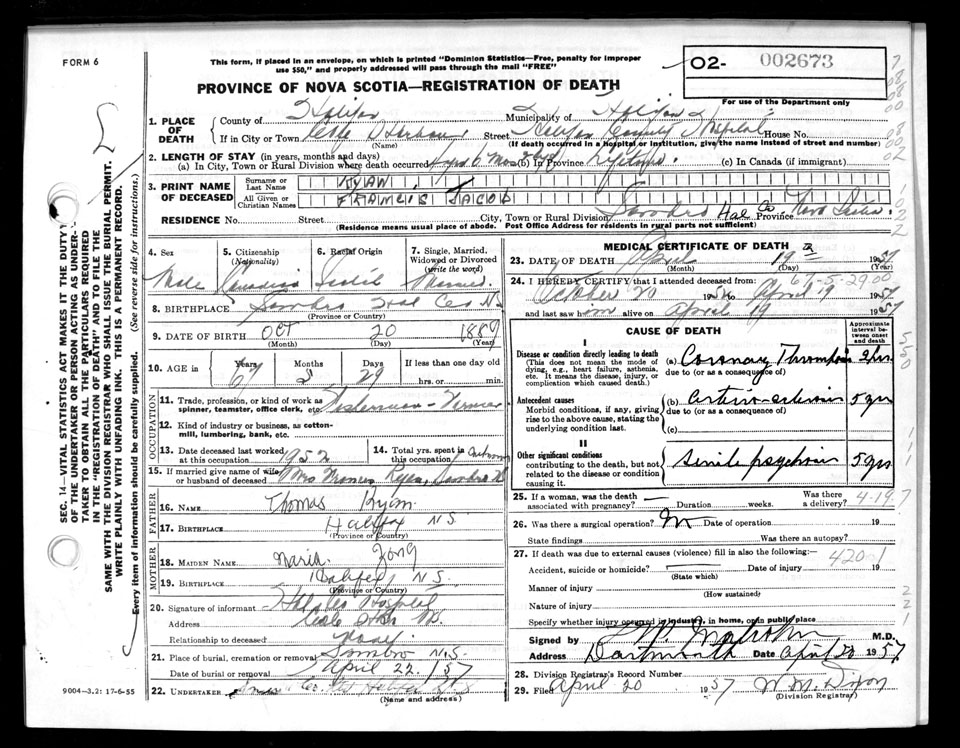 FORM 6
This form, if placed in an envelope, on which is printed "Dominion Statistics—Free, penalty for improper
use $50," and properly addressed will pass through the mail "FREE"
O2- 002673
PROVINCE OF NOVA SCOTIA—REGISTRATION OF DEATH
For use of the Department only
1. PLACE OF DEATH
County of Halifax Municipality of Halifax
If in City or Town Cole Harbour Street Halifax County Hospital House No.
(Name) (If death occurred in a hospital or institution, give the name instead of street and number)
2. LENGTH OF STAY (in years, months and days)
(a) In City, Town or Rural Division where death occurred 6 mos (b) in Province Lifetime. (c) In Canada (if immigrant)
3. PRINT NAME OF DECEASED
Surname or Last Name RYAN
All Given or Christian Names FRANCIS JACOB
RESIDENCE No. Street City, Town or Rural Division Sambro Hal Co Province Nova Scotia
(Residence means usual place of abode. Post Office Address for residents in rural parts not sufficient)
4. Sex Male
5. Citizenship (Nationality) Canadian
6. Racial Origin
7. Single, Married, Widowed or Divorced (write the word) Married
8. BIRTHPLACE Sambro Hal Co N.S.
(Province or Country)
9. DATE OF BIRTH OCT 20 1889
(Month) (Day) (Year)
10. AGE in Years 67 Months 5 Days 29 If less than one day old
hrs. or min.
OCCUPATION
11. Trade, profession, or kind of work as spinner, teamster, office clerk, etc. Fisherman - Farmer
12. Kind of industry or business, as cotton-mill, lumbering, bank, etc.
13. Date deceased last worked at this occupation 1952
14. Total yrs. spent in this occupation
15. If married give name of wife or husband of deceased Mrs Frances Ryan, Sambro
FATHER
16. NAME Thomas Ryan
17. BIRTHPLACE Halifax N.S.
(Province or Country)
MOTHER
18. MAIDEN NAME Maria
19. BIRTHPLACE Halifax N.S.
(Province or Country)
20. Signature of informant Hal Co Hospital
Address Cole Hbr N.S.
Relationship to deceased None.
21. Place of burial, cremation or removal Sambro N.S.
Date of burial or removal April 22 1957
22. UNDERTAKER
(Name and address)
9004-3.2: 17-6-55
MEDICAL CERTIFICATE OF DEATH
23. DATE OF DEATH April 19 1957
(Month) (Day) (Year)
24. I HEREBY CERTIFY that I attended deceased from: 67-5-29.00
October 20 1956 to April 19 1957
and last saw him alive on April 19 1957
CAUSE OF DEATH
Approximate interval between onset and death
I
Disease or condition directly leading to death (a) Coronary Thrombosis 2 hrs.
(This does not mean the mode of dying, e.g., heart failure, asthenia, etc. It means the disease, injury, or complication which caused death.)
due to (or as a consequence of)
Antecedent causes (b) Arterio-sclerosis 5 yrs
Morbid conditions, if any, giving rise to the above cause, stating the underlying condition last.
due to (or as a consequence of)
(c)
II
Other significant conditions Senile psychosis 5 yrs
contributing to the death, but not related to the disease or condition causing it.
25. If a woman, was the death associated with pregnancy? — Duration weeks. Was there a delivery? 4-19.7
26. Was there a surgical operation? Date of operation 19
State findings Was there an autopsy?
27. If death was due to external causes (violence) fill in also the following:— 420.1
Accident, suicide or homicide? Date of injury 19
(State which)
Manner of injury
(How sustained)
Nature of injury
Specify whether injury occurred in industry, in home, or in public place
Signed by M.D.
Address Dartmouth Date April 20 1957
28. Division Registrar's Record Number
29. Filed April 20 1957 W. M. Dixon
(Division Registrar)
SEC. 14—VITAL STATISTICS ACT MAKES IT THE DUTY
OF THE UNDERTAKER OR PERSON ACTING AS UNDER-
TAKER TO OBTAIN ALL THE PARTICULARS REQUIRED
IN THE "REGISTRATION OF DEATH" AND TO FILE THE
SAME WITH THE DIVISION REGISTRAR WHO SHALL ISSUE THE BURIAL PERMIT.
WRITE PLAINLY WITH UNFADING INK. THIS IS A PERMANENT RECORD.
Every item of information should be carefully supplied. (See reverse side for instructions.)